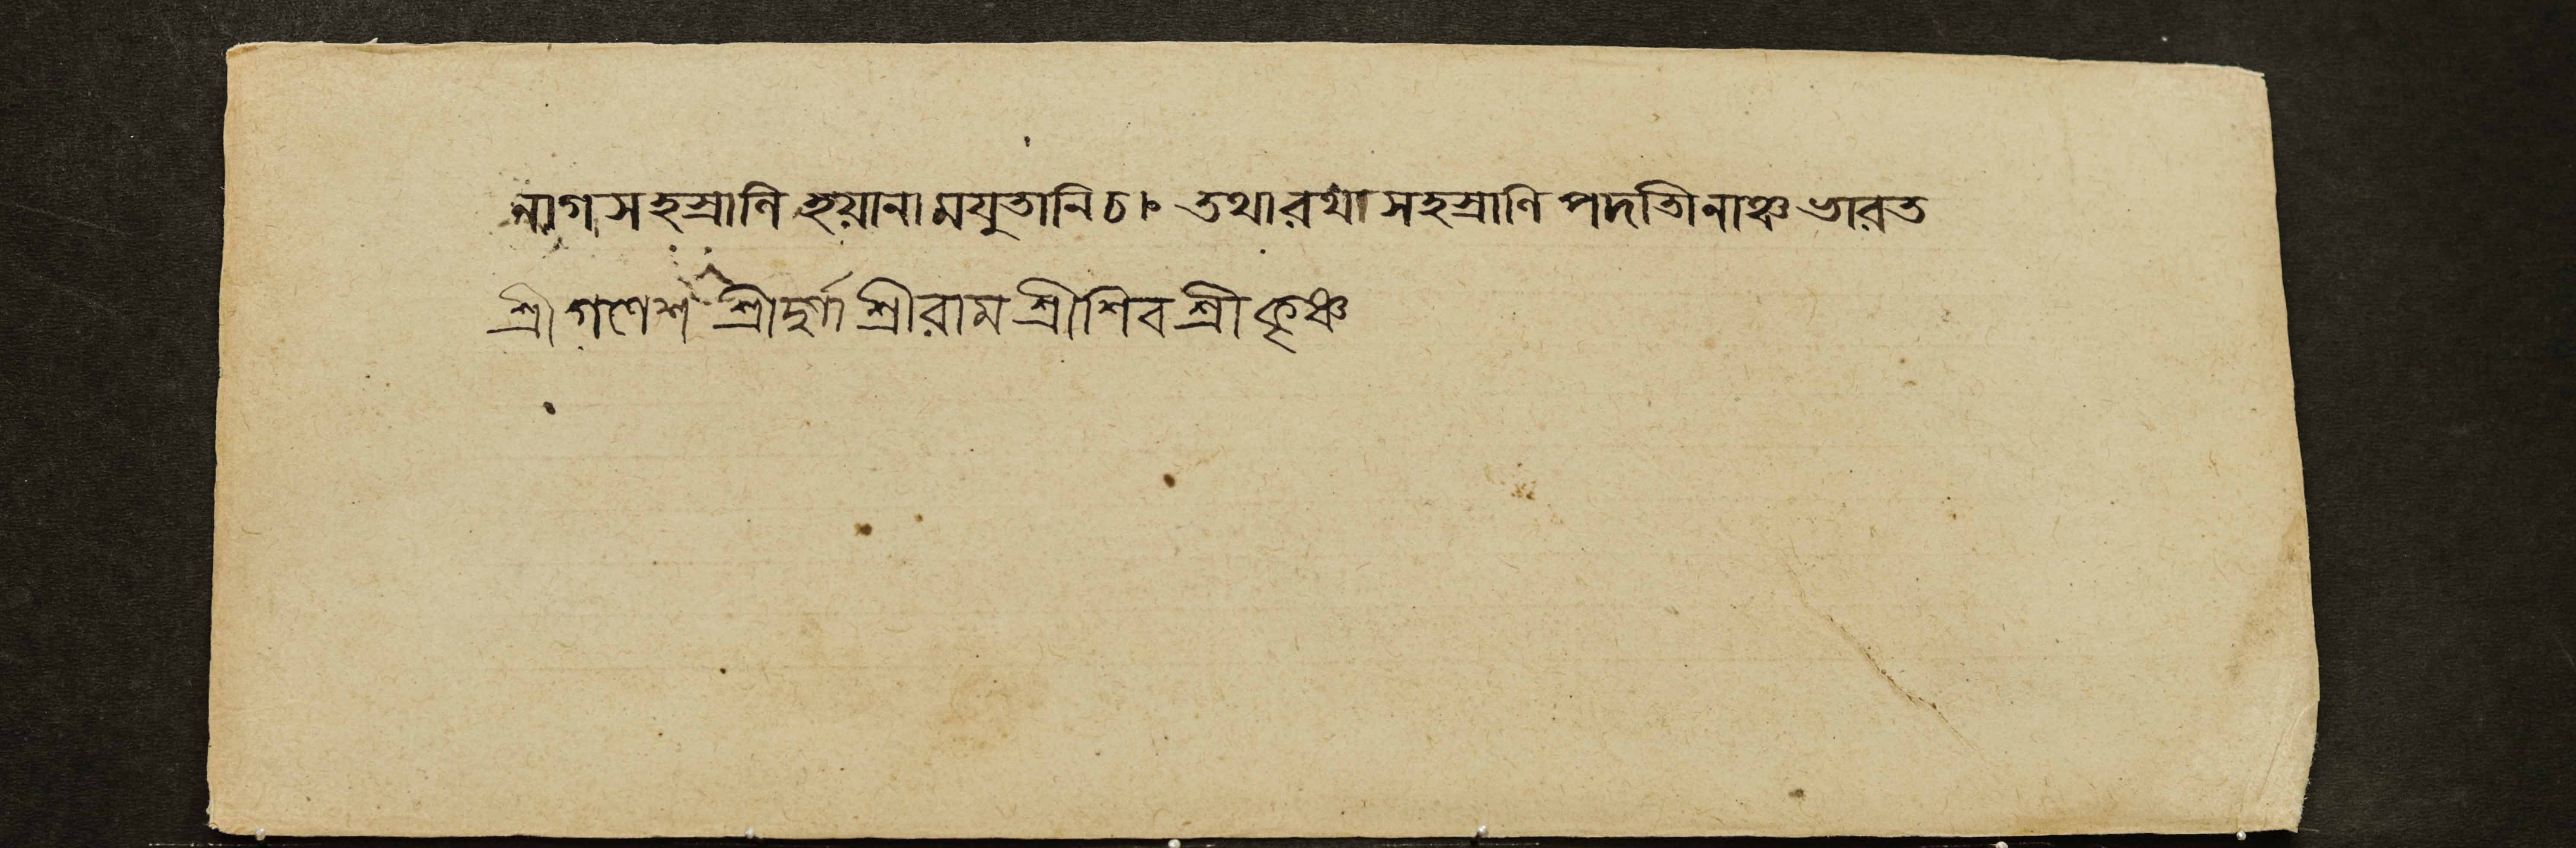 নাগসহস্রানি হয়ানামযুতানি চ। তথা রথা সহস্রাণি পদাতিনাঞ্চ ভারত
শ্রীগণেশ শ্রীদুর্গা শ্রীরাম শ্রীশিব শ্রীকৃষ্ণ